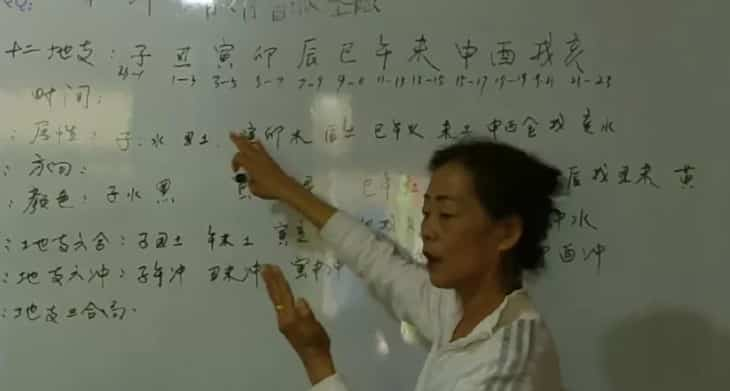 十二地支：子 丑 寅 卯 辰 巳 午 未 申 酉 戌 亥
23-1 1-3 3-5 5-7 7-9 9-11 11-13 13-15 15-17 17-19 19-21 21-23
时间：
：属性：子．水 丑土．寅卯木 辰土 巳午火 未土 申酉金 戌 亥水
：方向：
：颜色：子水 黑 巳午 红 辰戌丑未 黄
：地支六合：子丑土 午未土 寅亥 水
：地支六冲：子午冲 丑未冲 寅申冲 冲
：地支三合局．